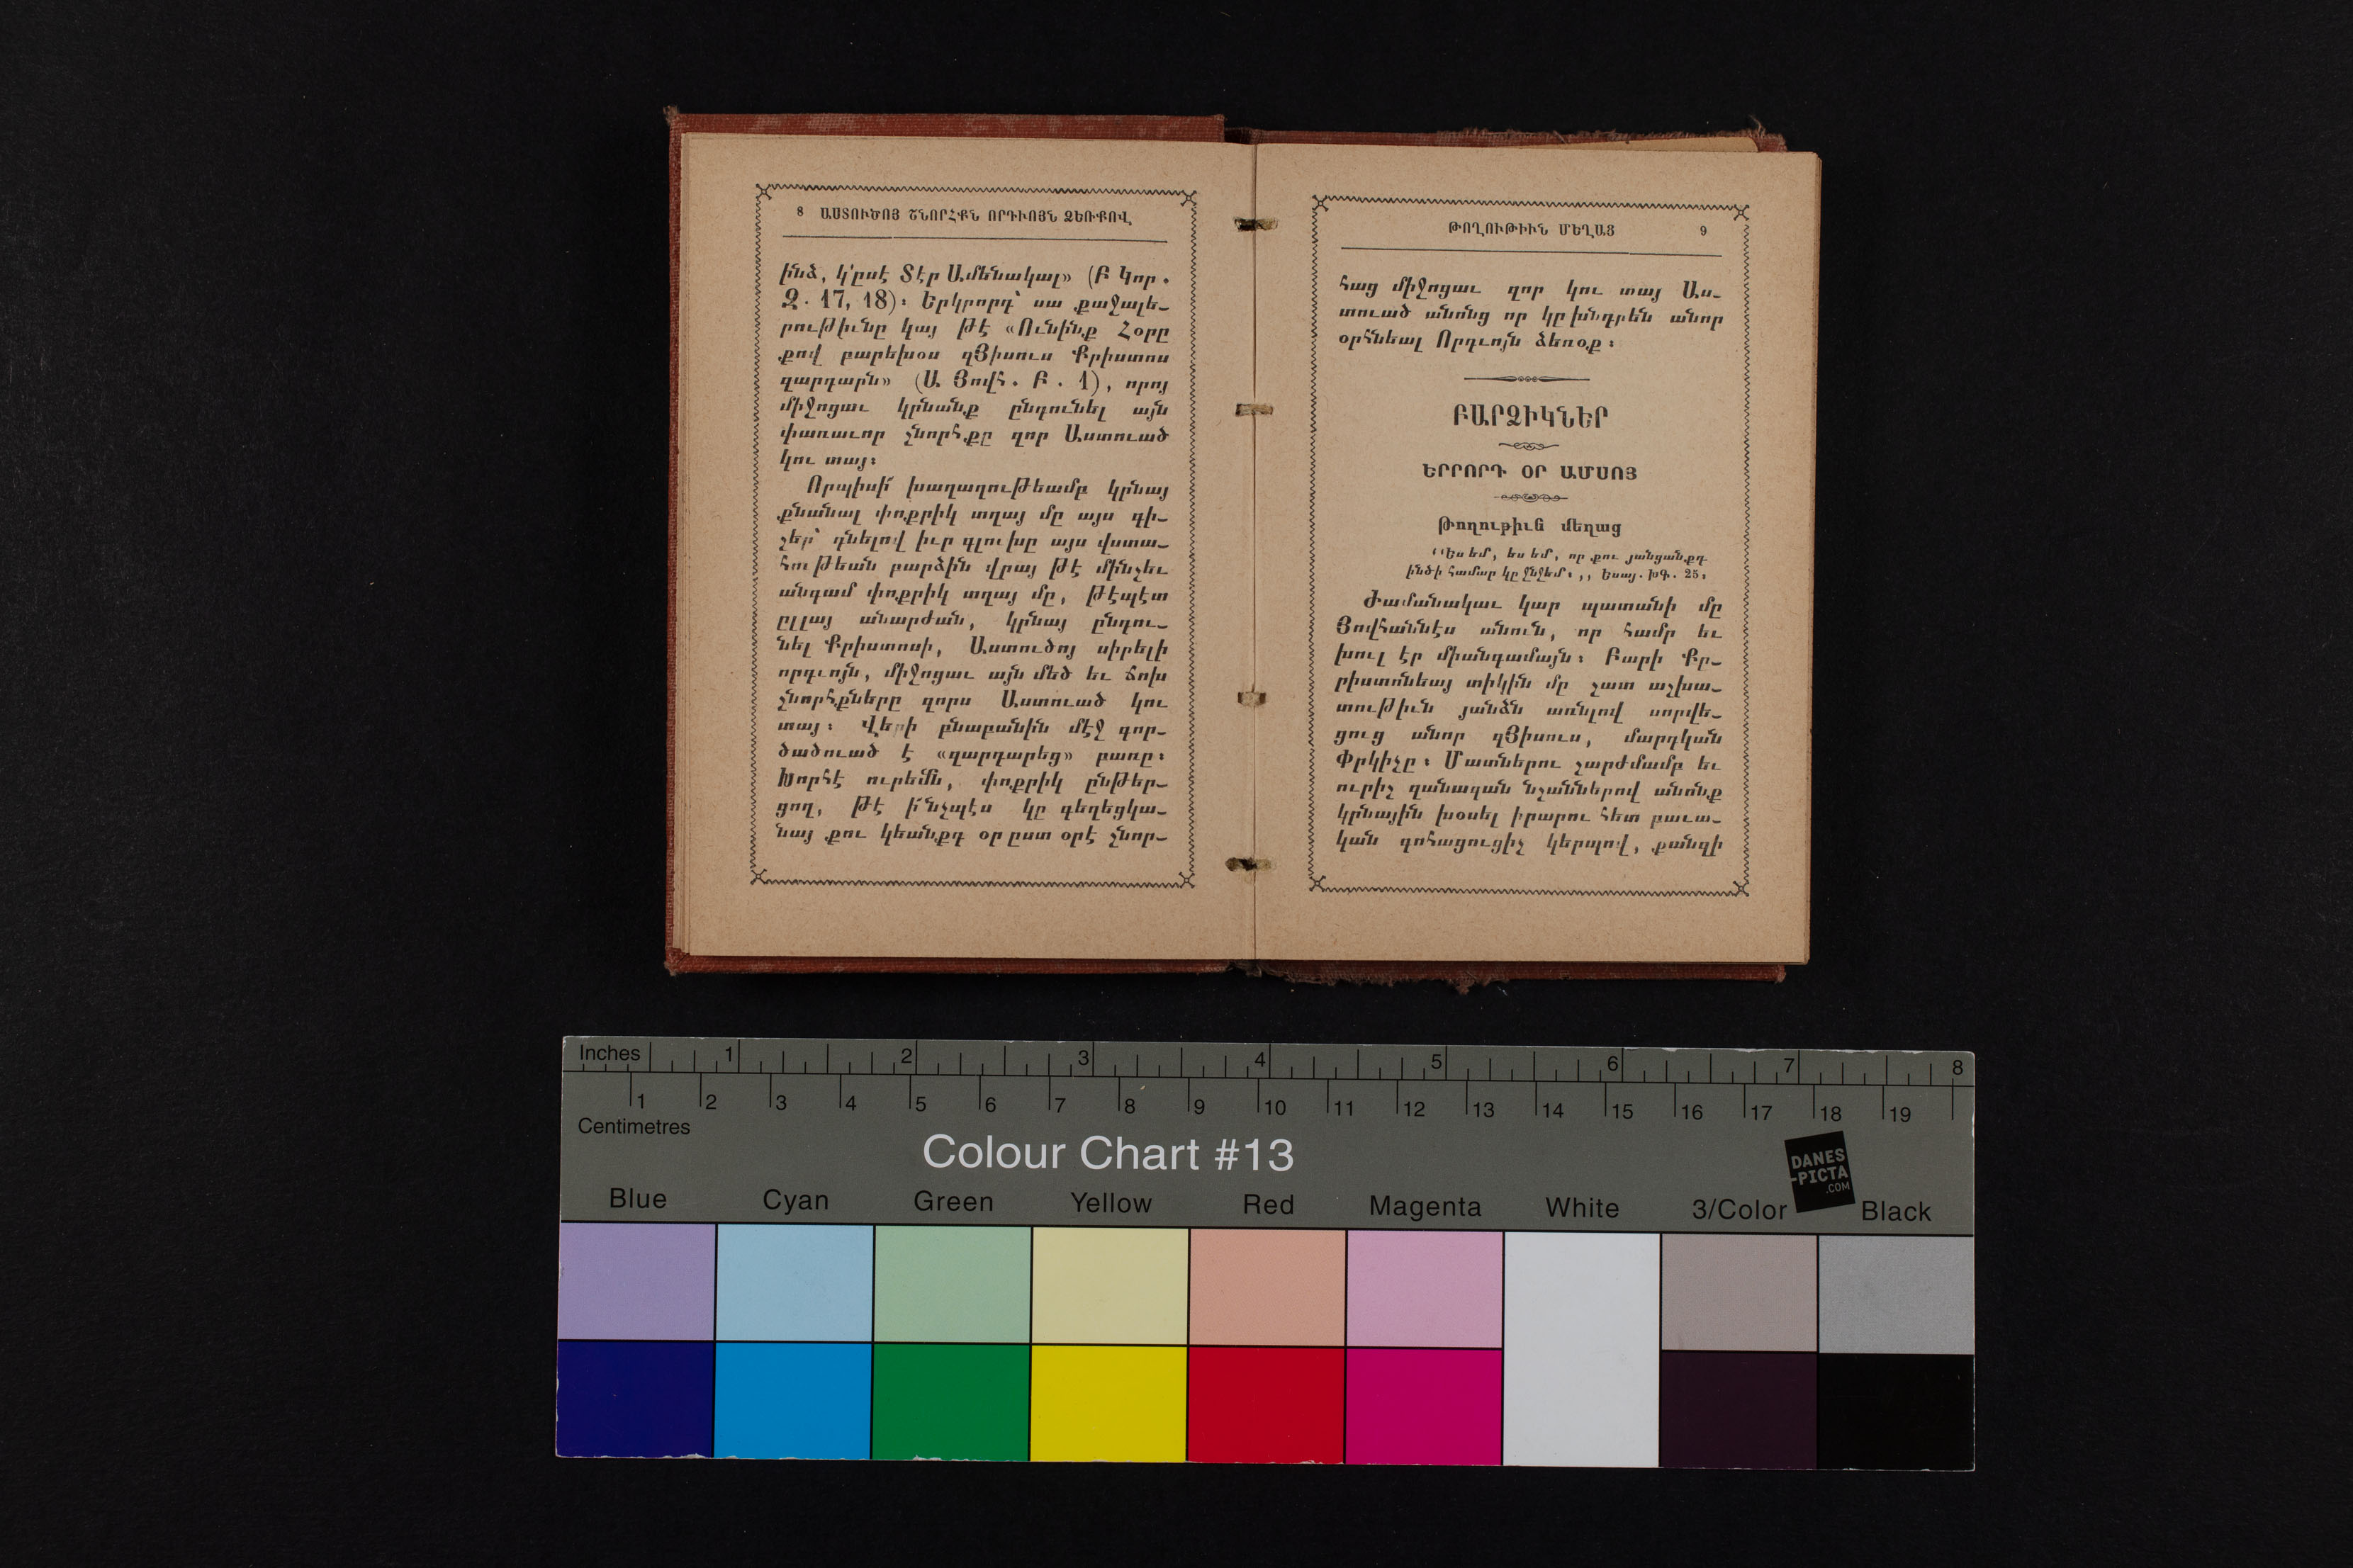 8 ԱՍՏՈՒԾՈՅ ՇՆՈՐՀՔՆ ՈՐԴԻՈՅՆ ՁԵՌՔՈՎ
ինձ, կ՚ըսէ Տէր Ամենակալ» (Բ Կոր.
Զ. 17, 18)։ Երկրորդ՝ սա քաջալե-
րութիւնը կայ թէ «Ունինք Հօրը
քով բարեխօս զՅիսուս Քրիստոս
զարդարն» (Ա Յովհ. Բ. 1), որոյ
միջոցաւ կրնանք ընդունել այն
փառաւոր շնորհքը զոր Աստուած
կու տայ։
Որպիսի՜ խաղաղութեամբ կրնայ
քնանալ փոքրիկ տղայ մը այս գի-
շեր՝ դնելով իւր գլուխը այս վստա-
հութեան բարձին վրայ թէ մինչեւ
անգամ փոքրիկ տղայ մը, թէպէտ
ըլլայ անարժան, կրնայ ընդու-
նել Քրիստոսի, Աստուծոյ սիրելի
որդւոյն, միջոցաւ այն մեծ եւ ճոխ
շնորհքները զորս Աստուած կու
տայ։ Վերի բնաբանին մէջ գոր-
ծածուած է «զարդարեց» բառը։
Խորհէ ուրեմն, փոքրիկ ընթեր-
ցող, թէ ի՜նչպէս կը գեղեցկա-
նայ քու կեանքդ օր ըստ օրէ շնոր-
ԹՈՂՈՒԹԻՒՆ ՄԵՂԱՑ 9
հաց միջոցաւ զոր կու տայ Աս-
տուած անոնց որ կը խնդրեն անոր
օրհնեալ Որդւոյն ձեռօք։
ԲԱՐՁԻԿՆԵՐ
ԵՐՐՈՐԴ ՕՐ ԱՄՍՈՅ
Թողութիւն մեղաց
‘‘Ես եմ, ես եմ, որ քու յանցանքդ
ինծի համար կը ջնջեմ։,, Եսայ. ԽԳ. 25։
Ժամանակաւ կար պատանի մը
Յովհաննէս անուն, որ համր եւ
խուլ էր միանգամայն։ Բարի Քր-
րիստոնեայ տիկին մը շատ աշխա-
տութիւն յանձն առնլով սորվե-
ցուց անոր զՅիսուս, մարդկան
Փրկիչը։ Մատներու շարժմամբ եւ
ուրիշ զանազան նշաններով անոնք
կրնային խօսել իրարու հետ բաւա-
կան գոհացուցիչ կերպով, քանզի
Inches 1 2 3 4 5 6 7 8
1 2 3 4 5 6 7 8 9 10 11 12 13 14 15 16 17 18 19
Centimetres
Colour Chart #13
DANES
-PICTA
.COM
Blue Cyan Green Yellow Red Magenta White 3/Color Black